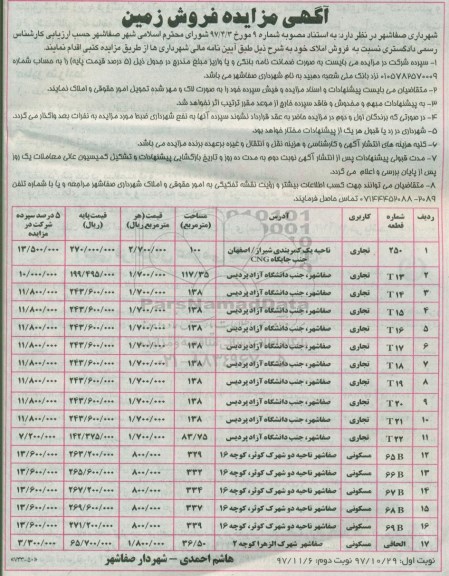 آگهی مزایده فروش زمین
شهرداری صفاشهر در نظر دارد: به استناد مصوبه شماره ۹ مورخ ۹۷/۳/۳ شورای محترم اسلامی شهر صفاشهر حسب ارزیابی کارشناس
رسمی دادگستری نسبت به فروش املاک خود به شرح ذیل طبق آیین نامه مالی شهرداری ها از طریق مزایده کتبی اقدام نمایند.
۱- سپرده شرکت در مزایده می بایست به صورت ضمانت نامه بانکی و یا واریز مبلغ مندرج در جدول ذیل (۵ درصد قیمت پایه) را به حساب شماره
۰۱۰۵۷۸۶۵۷۰۰۰۹ نزد بانک ملی شعبه دهبید به نام شهرداری صفاشهر می باشد.
۲- متقاضیان می بایست پیشنهادات و اسناد مزایده و فیش سپرده خود را به صورت لاک و مهر شده تحویل امور حقوقی و املاک نمایند.
۳- به پیشنهادات مبهم و مخدوش و فاقد سپرده خارج از موعد مقرر ترتیب اثر نخواهد شد.
۴- در صورتی که برندگان اول و دوم در مزایده حاضر به عقد قرارداد نشوند سپرده آنها به نفع شهرداری ضبط مورد مزایده به نفرات بعد واگذار می گردد.
۵- شهرداری در رد یا قبول هر یک از پیشنهادات مختار خواهد بود.
۶- کلیه هزینه های انتشار آگهی و کارشناسی و هزینه نقل و انتقال و غیره برعهده برنده مزایده می باشد.
۷- مدت قبولی پیشنهادات پس از انتشار آگهی نوبت دوم به مدت ده روز و تاریخ بازگشایی پیشنهادات و تشکیل کمیسیون عالی معاملات یک روز
پس از پایان بررسی و اعلام می گردد.
۸- متقاضیان می توانند جهت کسب اطلاعات بیشتر و رؤیت نقشه تفکیکی به امور حقوقی و املاک شهرداری صفاشهر مراجعه و یا با شماره تلفن
تماس حاصل فرمایند.
ردیف شماره قطعه کاربری آدرس مساحت (مترمربع) قیمت (هر مترمربع ریال) قیمت پایه (ریال) ۵ درصد سپرده شرکت در مزایده
۱ ۲۵۰ تجاری ناحیه یک کمربندی شیراز / اصفهان جنب جایگاه CNG ۱۰۰ ۲/۷۰۰/۰۰۰ ۲۷۰/۰۰۰/۰۰۰ ۱۳/۵۰۰/۰۰۰
۲ T ۱۳ تجاری صفاشهر، جنب دانشگاه آزاد پردیس ۱۱۷/۳۵ ۱/۷۰۰/۰۰۰ ۱۹۹/۴۹۵/۰۰۰ ۱۰/۰۰۰/۰۰۰
۳ T ۱۴ تجاری صفاشهر، جنب دانشگاه آزاد پردیس ۱۳۸ ۱/۷۰۰/۰۰۰ ۲۴۳/۶۰۰/۰۰۰ ۱۱/۸۰۰/۰۰۰
۴ T ۱۵ تجاری صفاشهر، جنب دانشگاه آزاد پردیس ۱۳۸ ۱/۷۰۰/۰۰۰ ۲۴۳/۶۰۰/۰۰۰ ۱۱/۸۰۰/۰۰۰
۵ T ۱۶ تجاری صفاشهر، جنب دانشگاه آزاد پردیس ۱۳۸ ۱/۷۰۰/۰۰۰ ۲۴۳/۶۰۰/۰۰۰ ۱۱/۸۰۰/۰۰۰
۶ T ۱۷ تجاری صفاشهر، جنب دانشگاه آزاد پردیس ۱۳۸ ۱/۷۰۰/۰۰۰ ۲۴۳/۶۰۰/۰۰۰ ۱۱/۸۰۰/۰۰۰
۷ T ۱۸ تجاری صفاشهر، جنب دانشگاه آزاد پردیس ۱۳۸ ۱/۷۰۰/۰۰۰ ۲۴۳/۶۰۰/۰۰۰ ۱۱/۸۰۰/۰۰۰
۸ T ۱۹ تجاری صفاشهر، جنب دانشگاه آزاد پردیس ۱۳۸ ۱/۷۰۰/۰۰۰ ۲۴۳/۶۰۰/۰۰۰ ۱۱/۸۰۰/۰۰۰
۹ T ۲۰ تجاری صفاشهر، جنب دانشگاه آزاد پردیس ۱۳۸ ۱/۷۰۰/۰۰۰ ۲۴۳/۶۰۰/۰۰۰ ۱۱/۸۰۰/۰۰۰
۱۰ T ۲۱ تجاری صفاشهر، جنب دانشگاه آزاد پردیس ۱۳۸ ۱/۷۰۰/۰۰۰ ۲۴۳/۶۰۰/۰۰۰ ۱۱/۸۰۰/۰۰۰
۱۱ T ۲۲ تجاری صفاشهر، جنب دانشگاه آزاد پردیس ۸۳/۷۵ ۱/۷۰۰/۰۰۰ ۱۴۲/۳۷۵/۰۰۰ ۷/۲۰۰/۰۰۰
۱۲ ۶۵ B مسکونی صفاشهر ناحیه دو شهرک کوثر، کوچه ۱۶ ۳۲۹ ۸۰۰/۰۰۰ ۲۶۳/۲۰۰/۰۰۰ ۱۳/۶۰۰/۰۰۰
۱۳ ۶۶ B مسکونی صفاشهر ناحیه دو شهرک کوثر، کوچه ۱۶ ۳۳۲ ۸۰۰/۰۰۰ ۲۶۵/۶۰۰/۰۰۰ ۱۳/۶۰۰/۰۰۰
۱۴ ۶۷ B مسکونی صفاشهر ناحیه دو شهرک کوثر، کوچه ۱۶ ۳۳۴ ۸۰۰/۰۰۰ ۲۶۷/۲۰۰/۰۰۰ ۱۳/۶۰۰/۰۰۰
۱۵ ۶۸ B مسکونی صفاشهر ناحیه دو شهرک کوثر، کوچه ۱۶ ۳۳۷ ۸۰۰/۰۰۰ ۲۶۹/۶۰۰/۰۰۰ ۱۳/۶۰۰/۰۰۰
۱۶ ۶۹ B مسکونی صفاشهر ناحیه دو شهرک کوثر، کوچه ۱۶ ۳۳۹ ۸۰۰/۰۰۰ ۲۷۱/۲۰۰/۰۰۰ ۱۳/۶۰۰/۰۰۰
۱۷ الحاقی مسکونی صفاشهر شهرک الزهرا کوچه ۲ ۳۶/۵۰ ۱/۸۰۰/۰۰۰ ۶۵/۷۰۰/۰۰۰ ۳/۳۰۰/۰۰۰
نوبت اول: ۹۷/۱۰/۲۹ نوبت دوم: ۹۷/۱۱/۶
هاشم احمدی - شهردار صفاشهر
ParsNamadData